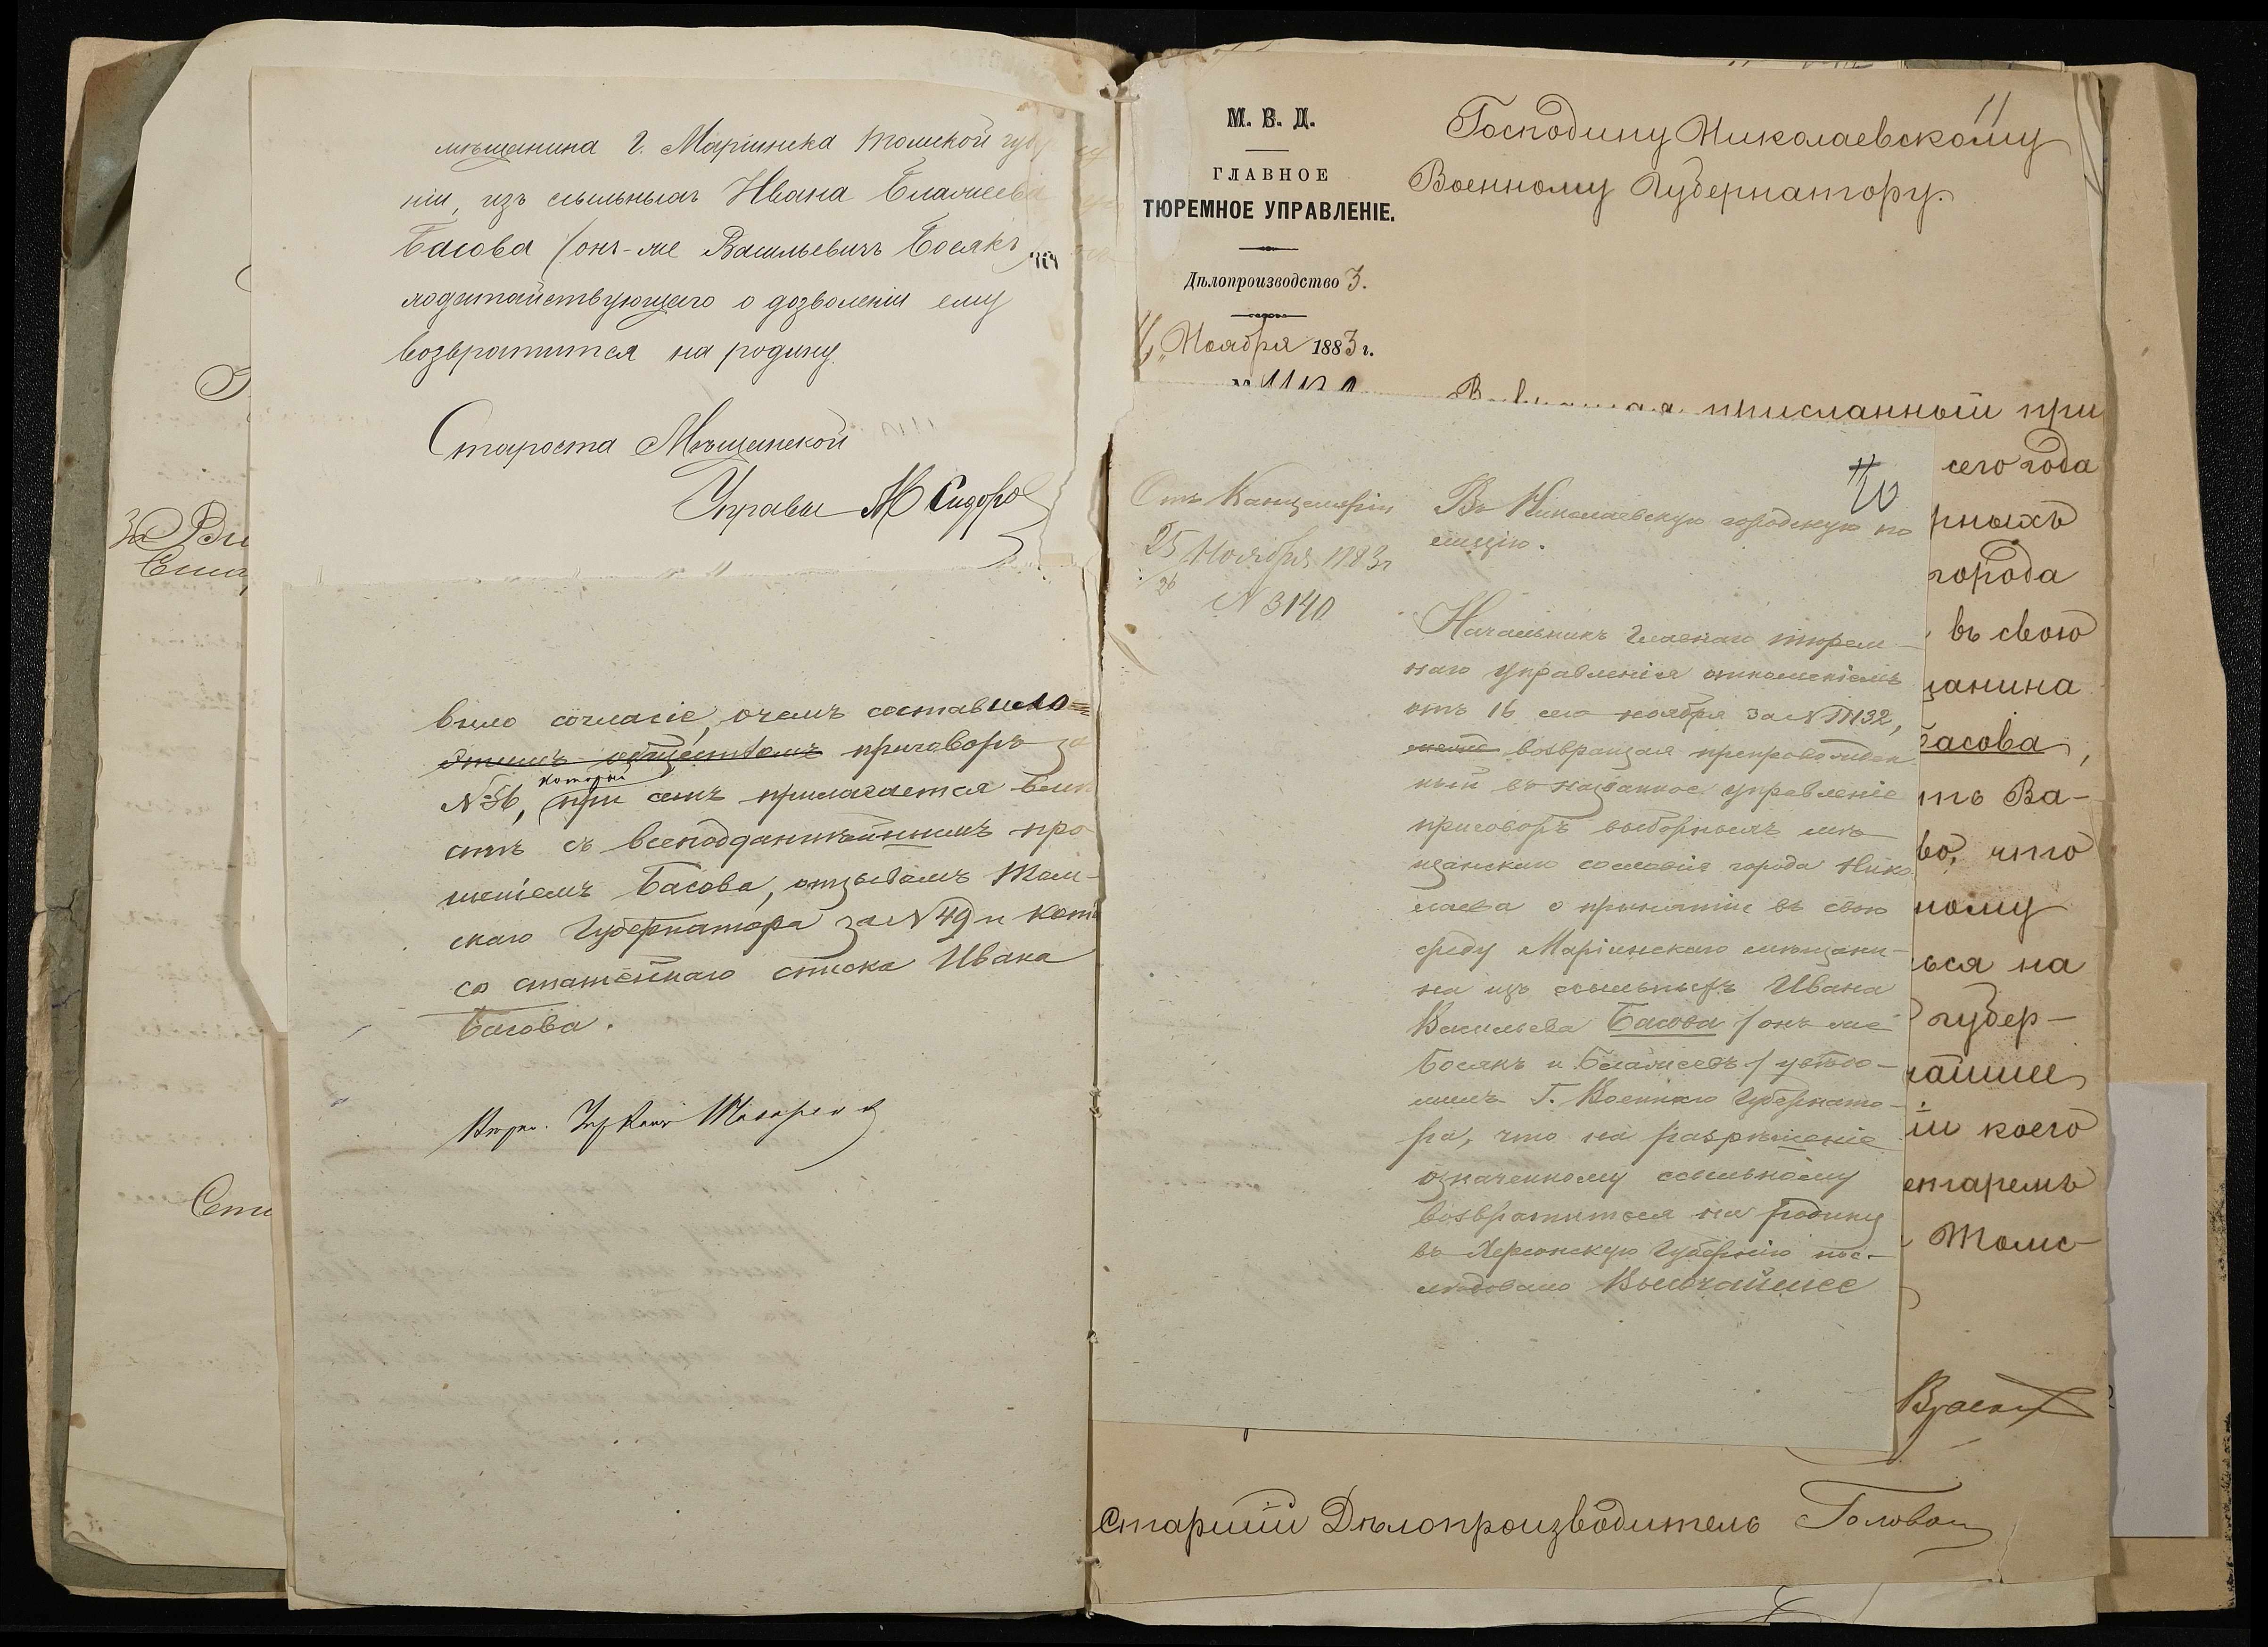 мѣщанина г. Маріинска Томской губ
ніи, изъ ссыльныхъ Ивана Еламеева
Басова (онъ-же Васильевичъ Босякъ)
ходатайствующаго о дозволеніи ему
возвратится на родину.
Староста Мѣщанской
Управы М Сидоро
вило согласіе, о чемъ составило
приговоръ за
который
№ 56, при семъ прилагается вмѣ
стѣ съ всеподданнѣйшимъ про
шеніемъ Басова, отзывомъ Том-
скаго Губернатора за № 49 и копі
со статейнаго списка Ивана
Басова.
За
Ст
М. В. Д.
ГЛАВНОЕ
ТЮРЕМНОЕ УПРАВЛЕНІЕ.
Дѣлопроизводство 3.
Ноября 1883 г.
11
Господину Николаевскому
Военному Губернатору.
присланный при
сего года
рныхъ
города
въ свою
щанина
Басова,
ть Ва-
во, что
ному
ься на
губер-
чайшее
іи коего
етаремъ
Томс-
Старшій Дѣлопроизводитель Голован
Отъ Канцеляріи
25 Ноября 1883 г
26
№ 3140
10
Въ Николаевскую городскую по
лицію.
Начальникъ Главнаго тюрем-
наго управленія отношеніемъ
отъ 16 сего ноября за № 11132,
возвращая препровожден
ный въ названное управленіе
приговоръ выборныхъ мѣ
щанскаго сословія города Нико
лаева о принятіи въ свою
среду Маріинскаго мѣщани-
на изъ ссыльныхъ Ивана
Васильева Басова (онъ же
Босякъ и Еламеевъ) увѣдо-
милъ Г. Военнаго Губернато-
ра, что на разрѣшеніе
означенному ссыльному
возвратиться на родину
въ Херсонскую Губернію пос-
лѣдовало Высочайшее